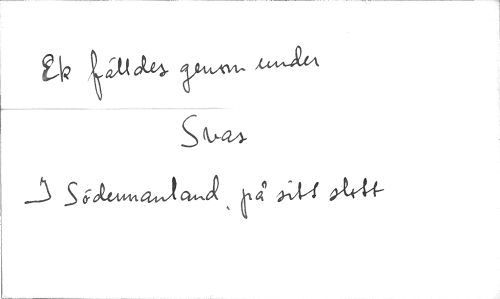 Ek fälldes genom under
Svar
I Södermanland, på sitt slott